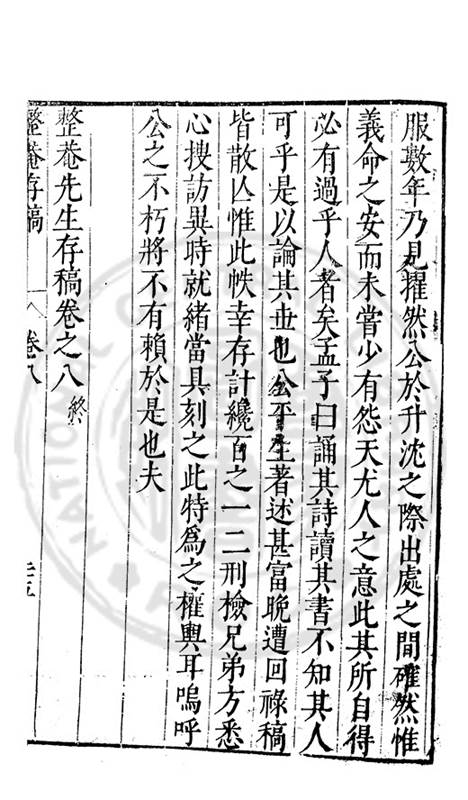 服數年乃見擢然公於升沈之際出處之間確然惟
義命之安而未嘗少有怨天尤人之意此其所自得
必有過乎人者矣孟子曰誦其詩讀其書不知其人
可乎是以論其世也公平生著述甚富晚遭回祿稿
皆散亾惟此帙幸存計纔百之一二刑檢兄弟方悉
心搜訪異時就緒當具刻之此特爲之權輿耳嗚呼
公之不朽將不有賴於是也夫
整菴先生存稿卷之八 終
整菴存稿 卷八 二五
NATIONAL